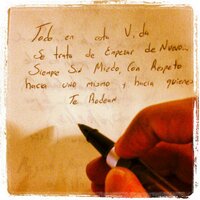 Todo en esta Vida
Se trata de Empezar de Nuevo...
Siempre Sin Miedo, Con Respeto
hacia uno mismo y hacia quienes
Te Rodean